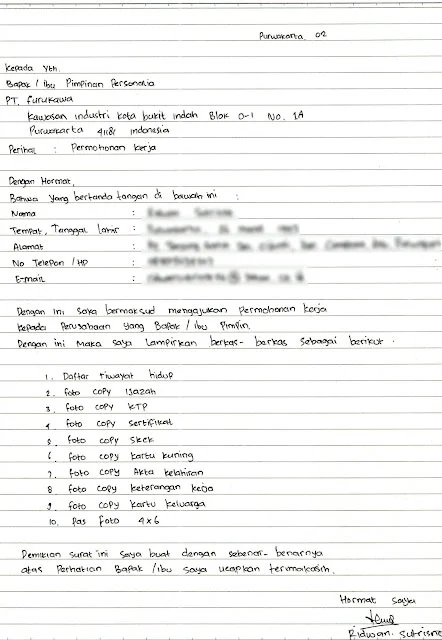 Purwakarta, 02
Kepada Yth.
Bapak / Ibu Pimpinan Personalia
PT. Furukawa
Kawasan industri kota bukit indah Blok D-1 No. 1A
Purwakarta 41181 Indonesia
Perihal : Permohonan kerja
Dengan Hormat,
Bahwa yang bertanda tangan di bawah ini :
Nama :
Tempat, Tanggal Lahir :
Alamat :
No Telepon / HP :
E-mail :
Dengan ini saya bermaksud mengajukan permohonan kerja
kepada perusahaan yang Bapak / Ibu Pimpin.
Dengan ini maka saya lampirkan berkas- berkas sebagai berikut.
1. Daftar riwayat hidup
2. foto copy Ijazah
3. foto copy KTP
4 foto copy sertifikat
5. foto copy skck
6. foto copy kartu kuning
7. foto copy Akta kelahiran
8 foto copy keterangan kerja
9. foto copy kartu keluarga
10. Pas foto 4x6
Demikian surat ini saya buat dengan sebenar- benarnya
atas Perhatian Bapak / Ibu saya ucapkan terimakasih.
Hormat saya
Ridwan. Sutrisna